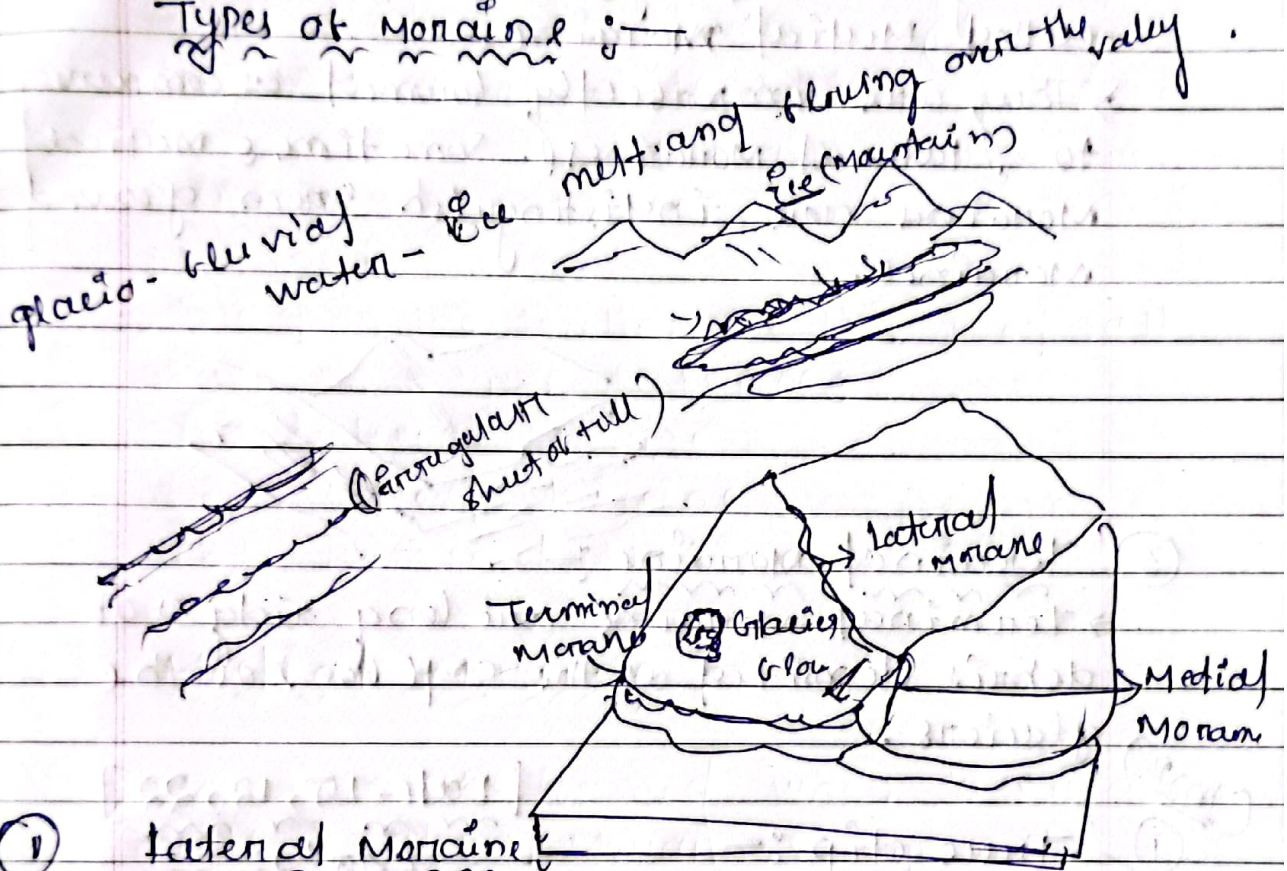 Types of Moraine :-
glacio-fluvial water - Ice melt and flowing over the valey.
Ice (Mountain)
(irrugular
sheet of till)
Lateral
morane
Terminal
morane
Glacier
flow
Medial
Morane
① Lateral Moraine